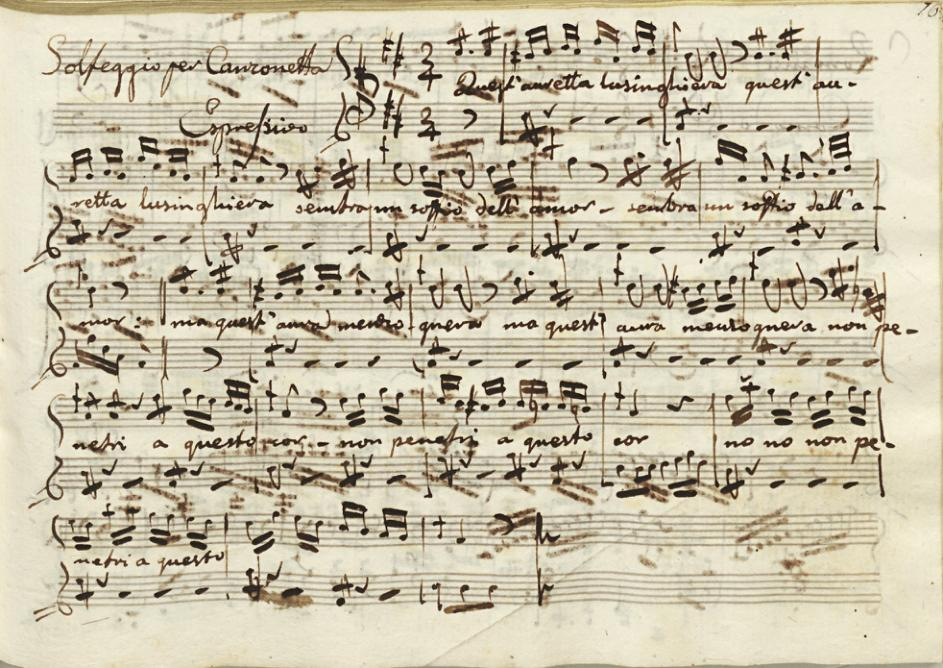 Solfeggio per Canzonetta
Espressivo
Quest' auretta lusinghiera quest' au-
retta lusinghiera sembra un soffio dell' amor - sembra un soffio dell' a-
mor: ma quest' aura menzo-gnera ma quest' aura menzognera non pe-
netri a questo cor - non penetri a questo cor no no non pe-
netri a questo